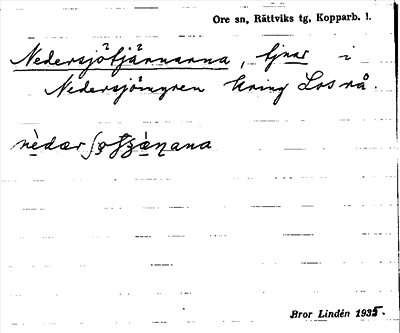 Ore sn, Rättviks tg, Kopparb. l.
Nedersjötjärnarna, tjnar i
Nedersjömyren kring Los rå.
Bror Lindén 1935.